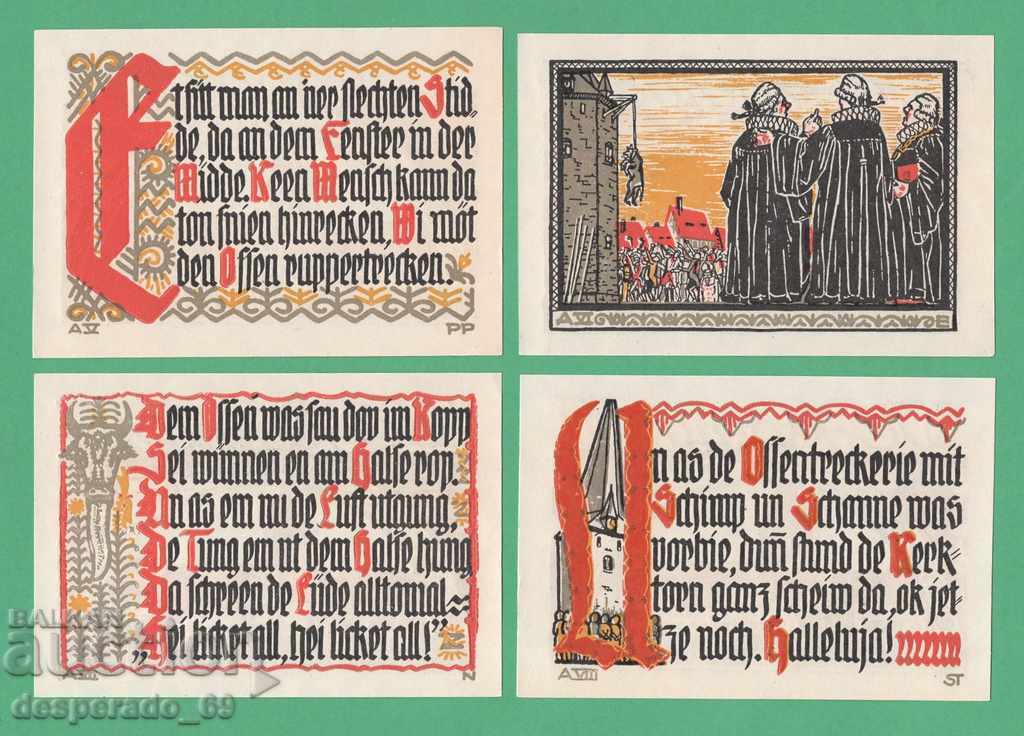 Et sitt man an der slechten Stid-
de, da an dem Fenster in der
Midde. Keen Mensch kann da
ton frien hinrecken, Wi möt
den Ossen ruppertrecken.
A V
PP
A VI
E
Dem Ossen was san dov im Kopp
Sei wünnen en am Halse rop
Un as em nu de Luft utgung,
De Tung em ut dem Halse hung
Da schreen de Lüde alltomal
„Hei licket all, hei licket all!“
N
Un as de Ossentreckerie mit
Schimp un Schanne was
vorbie, dunn stund de Kerk-
torn ganz scheiw da, ok jet-
ze noch. Halleluja!
A VIII
ST
BALKAN
auction
desperado_69